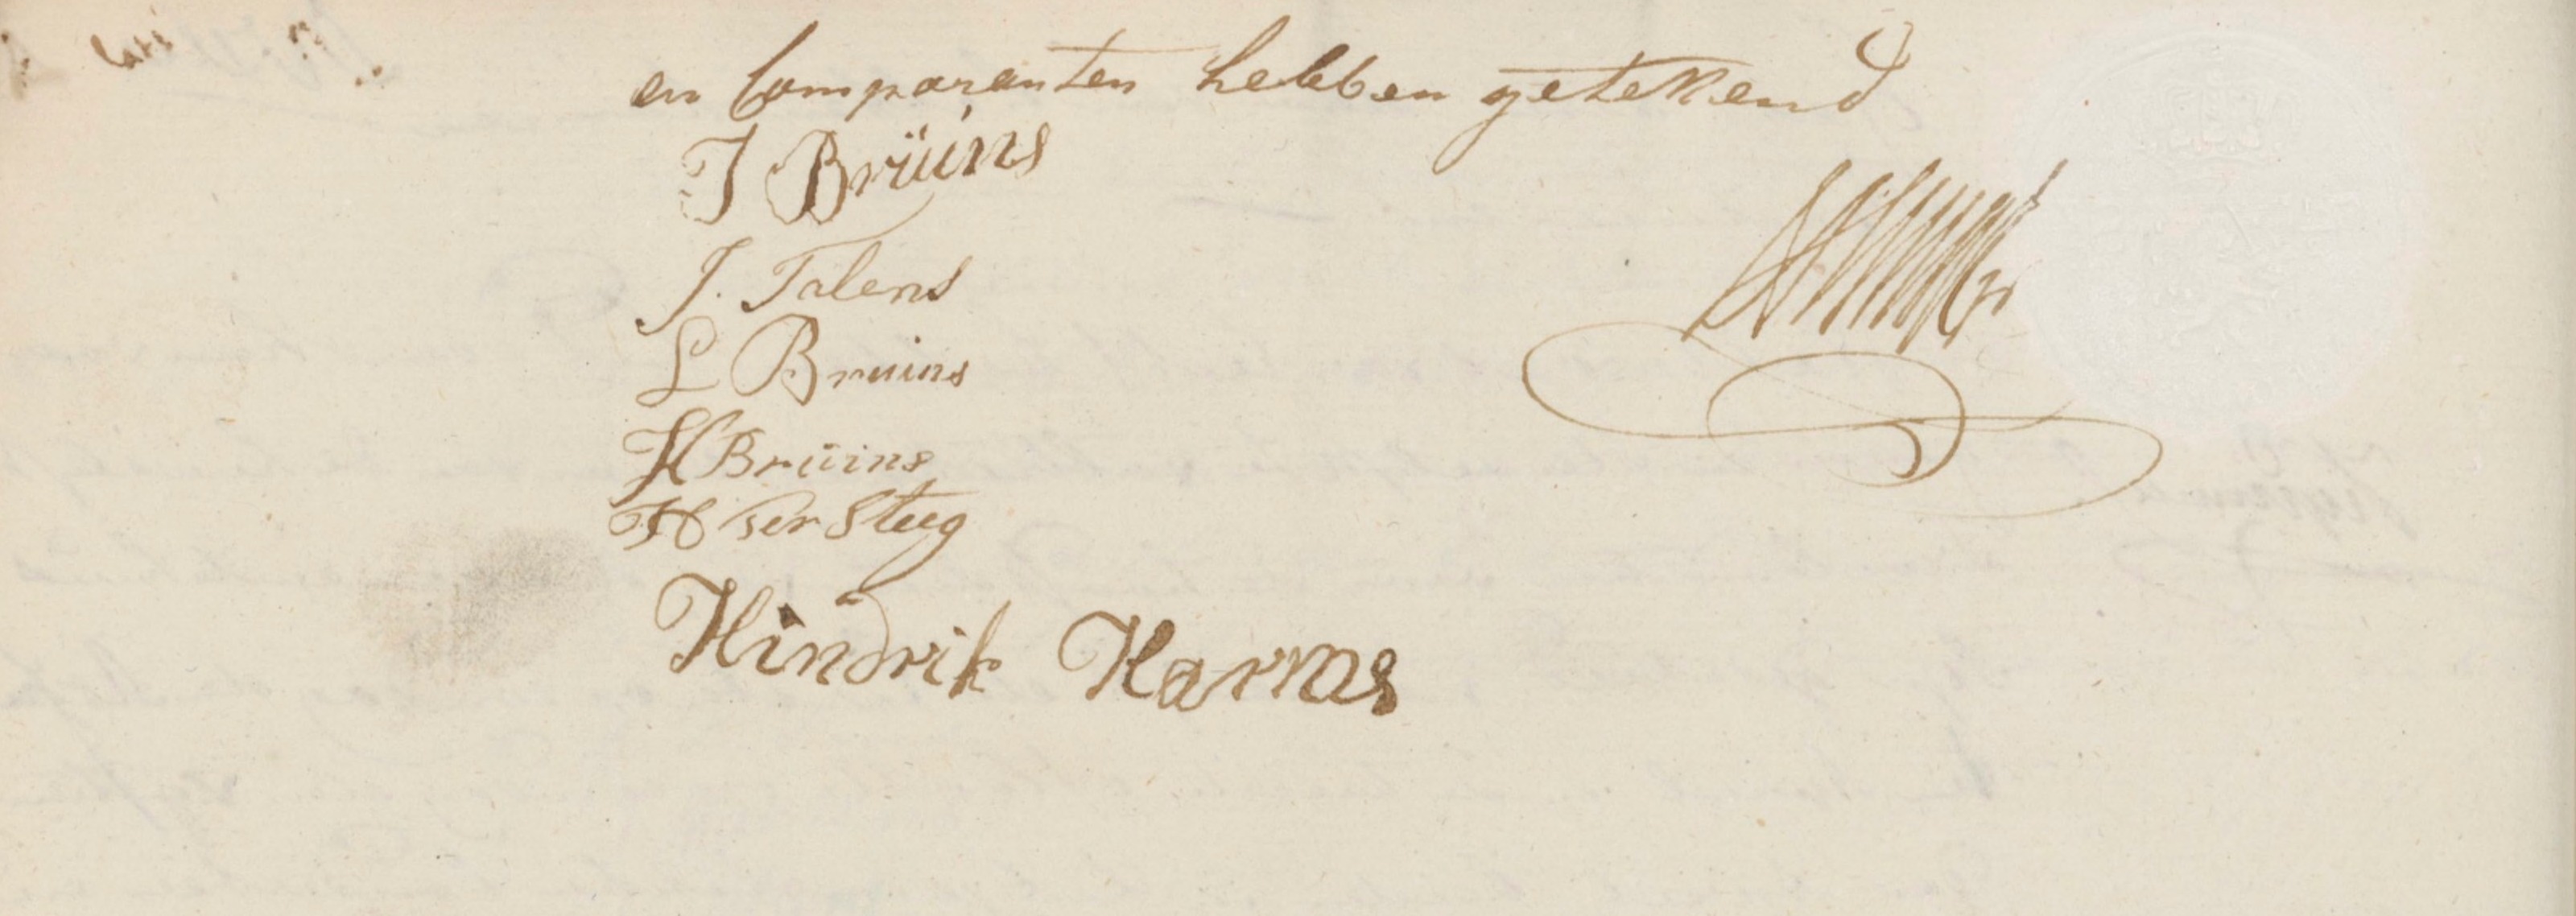 en Comparanten hebben getekend
J Brüins
J. Talens
L Bruins
H Brüins
H Ter Steeg
Hindrik Harms